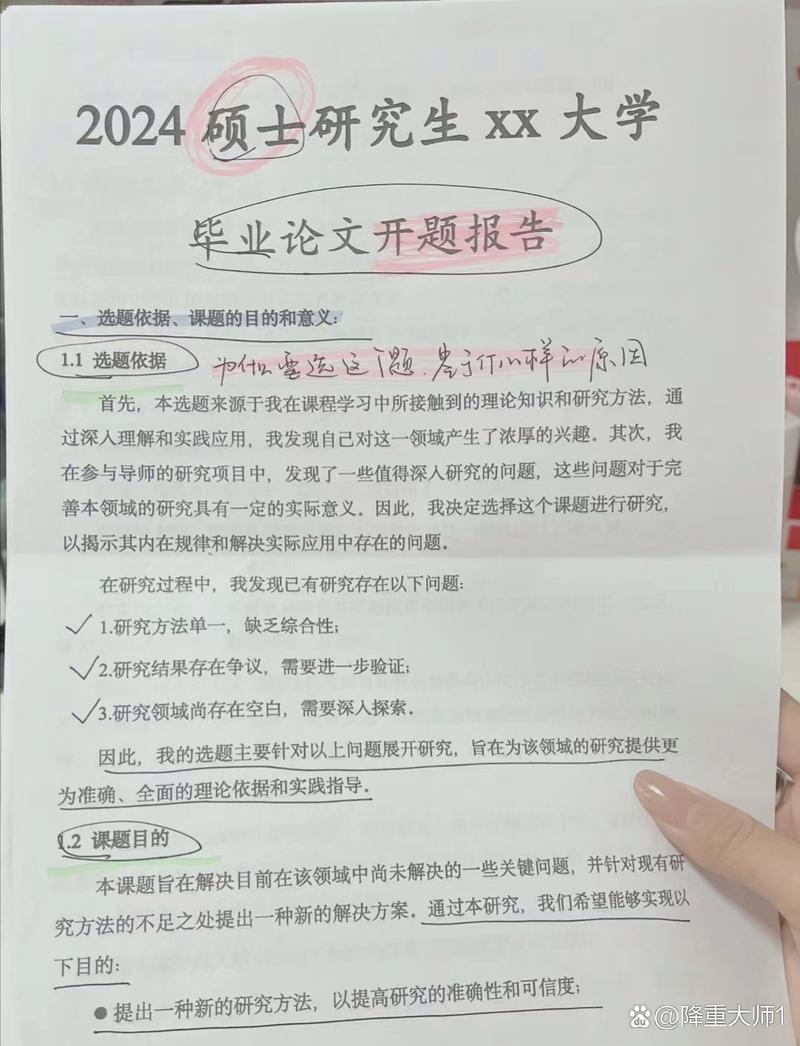 2024 硕士研究生 xx 大学
毕业论文开题报告
一、选题依据、课题的目的和意义：
1.1 选题依据
为什么要选这个题，基于什么样的原因
首先，本选题来源于我在课程学习中所接触到的理论知识和研究方法，通
过深入理解和实践应用，我发现自己对这一领域产生了浓厚的兴趣。其次，我
在参与导师的研究项目中，发现了一些值得深入研究的问题，这些问题对于完
善本领域的研究具有一定的实际意义。因此，我决定选择这个课题进行研究，
以揭示其内在规律和解决实际应用中存在的问题。
在研究过程中，我发现已有研究存在以下问题：
1.研究方法单一，缺乏综合性；
2.研究结果存在争议，需要进一步验证；
3.研究领域尚存在空白，需要深入探索。
因此，我的选题主要针对以上问题展开研究，旨在为该领域的研究提供更
为准确、全面的理论依据和实践指导。
1.2 课题目的
本课题旨在解决目前在该领域中尚未解决的一些关键问题，并针对现有研
究方法的不足之处提出一种新的解决方案。通过本研究，我们希望能够实现以
下目的：
●提出一种新的研究方法，以提高研究的准确性和可信度；
@降重大师1